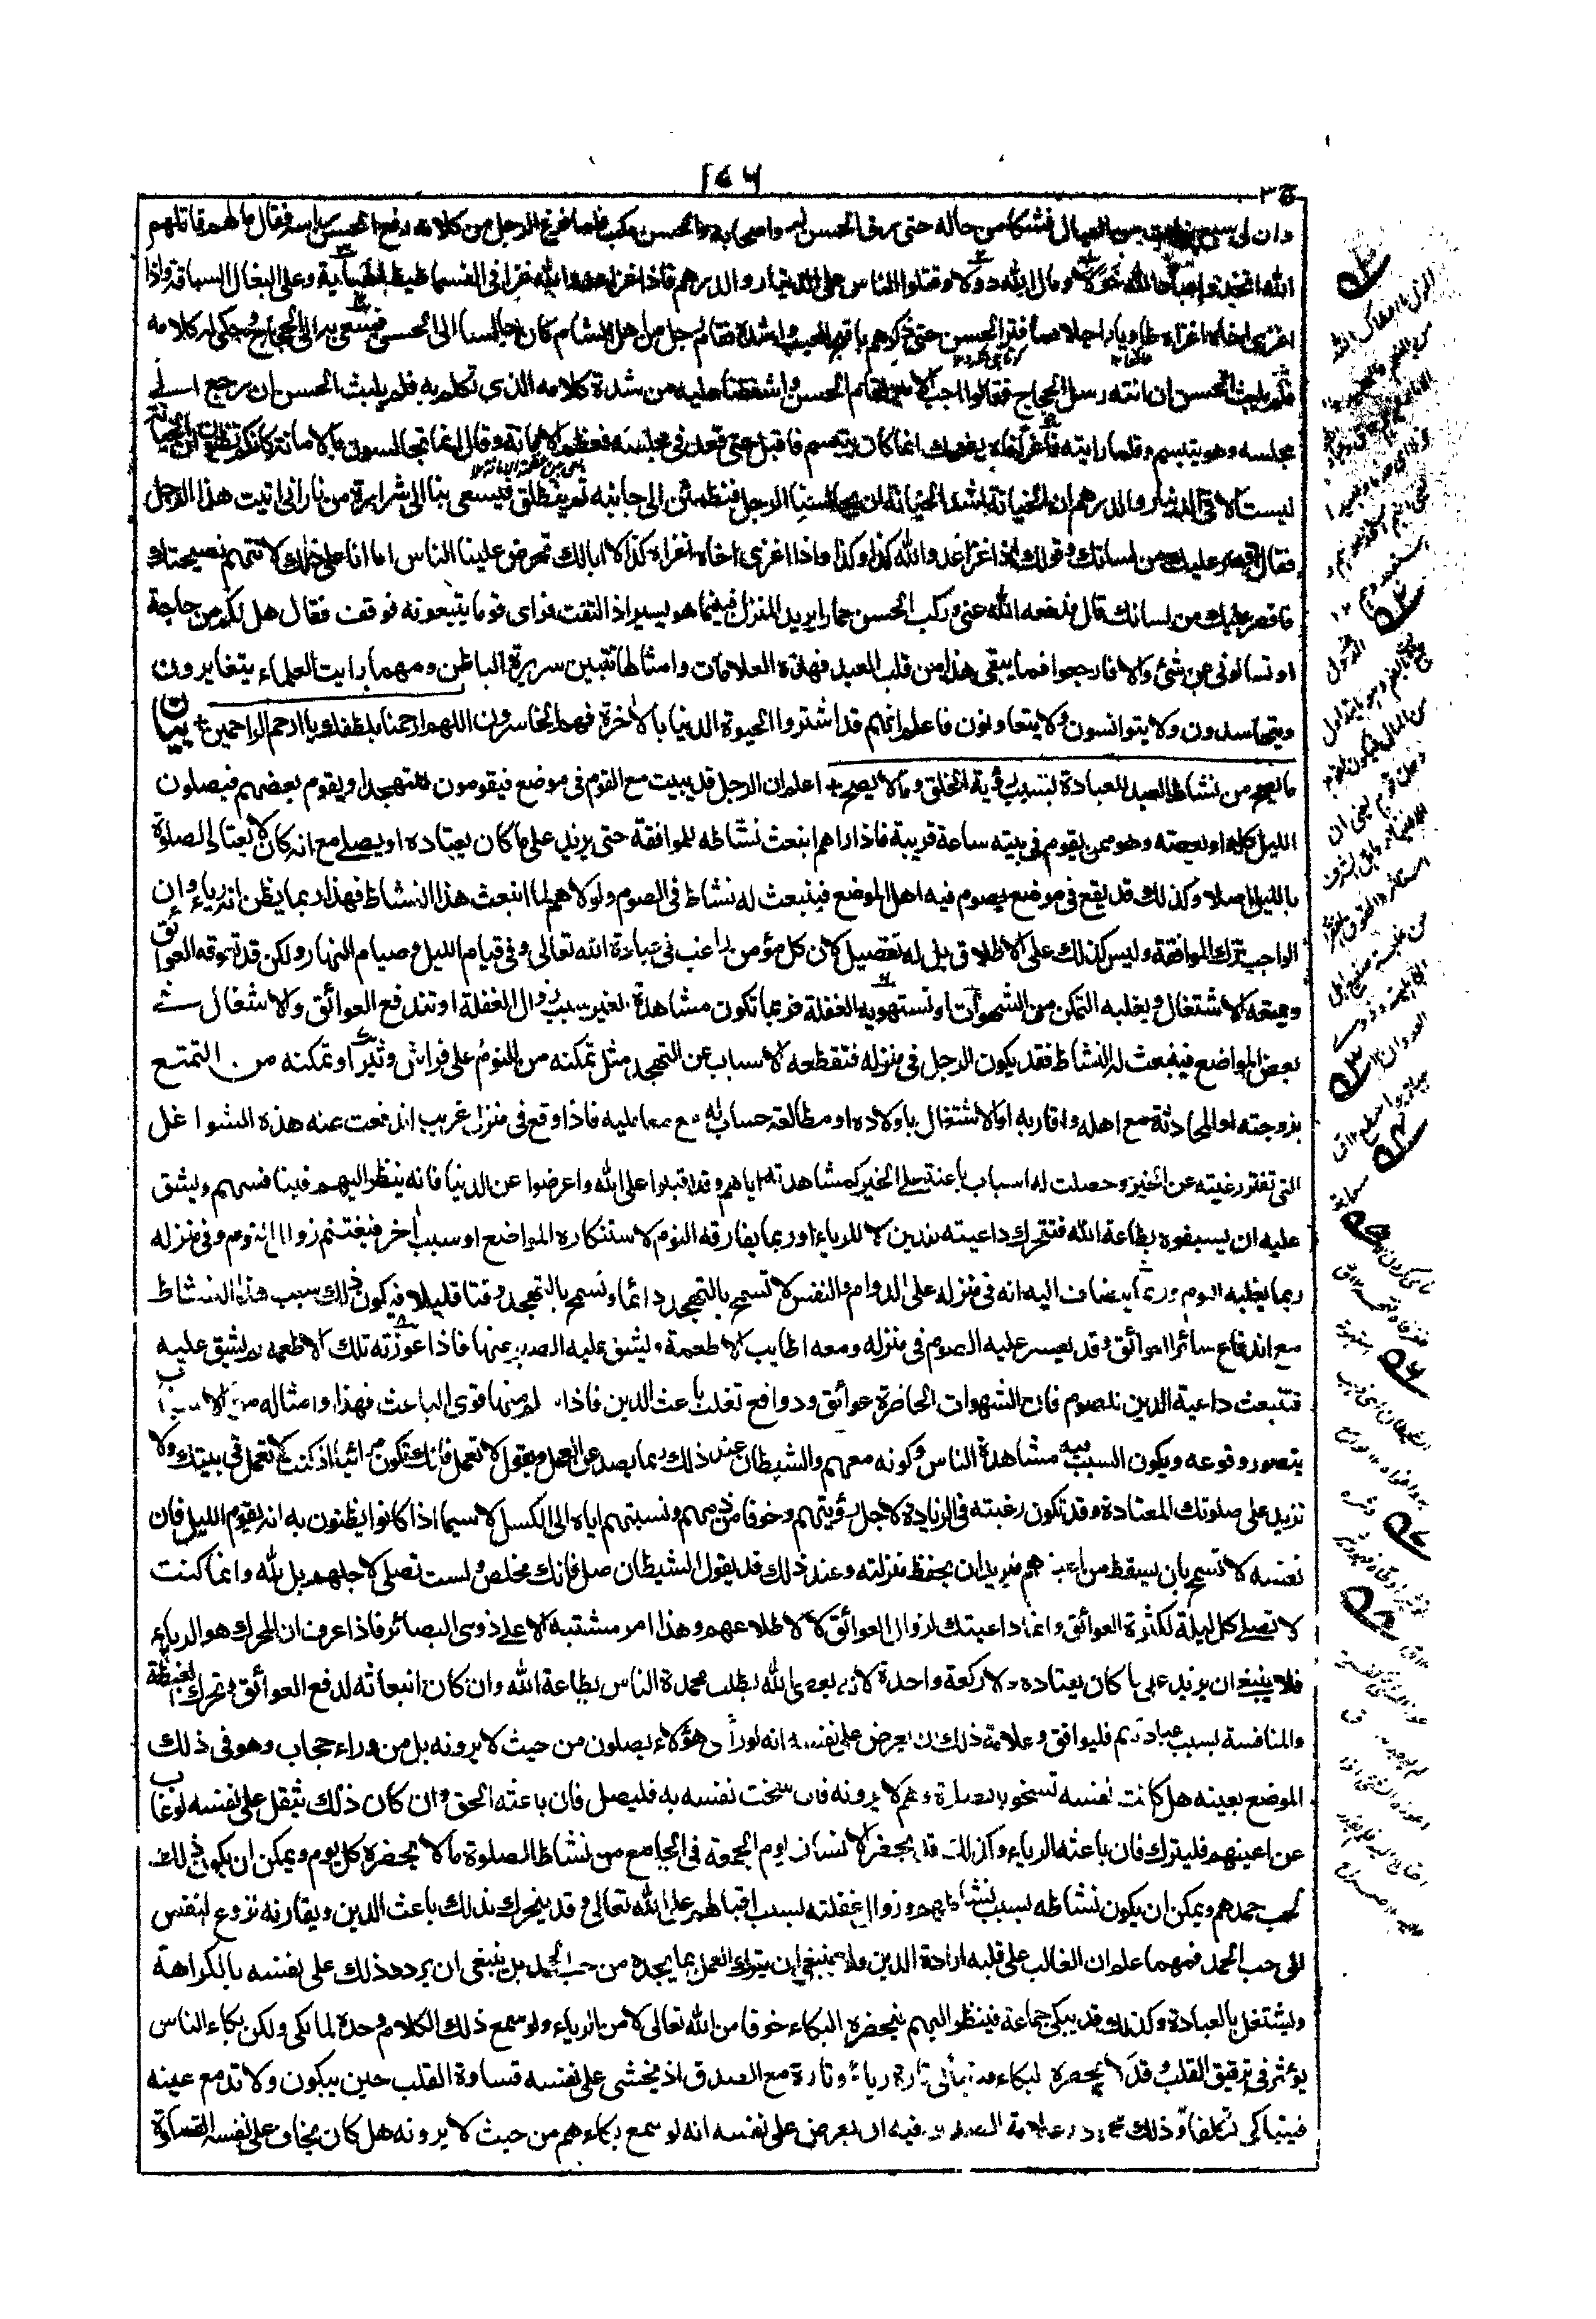 ١٧٦
وان لى سبع بنات من العيال فشكا من حاله حتى رق الحسن له واصحابه والحسن مكب فلما فرغ الرجل من كلامه رفع الحسن راسه فقال ما لهم قاتلهم
الله اتخذوا عباد الله خولا ومال الله دولا وقتلوا الناس على الدينار والدرهم فاذا غزا عدو الله غزا فى الفساطيط الهبابة وعلى البغال السباقة واذا
اغزى اخاه اغزاه طاويا راجلا فما فتر الحسن حتى ذكرهم باقبح العيب واشده فقام رجل من اهل الشام كان جالسا الى الحسن فسعى به الى الحجاج وحكى له كلامه
فلم يلبث الحسن ان اتته رسل الحجاج فقالوا اجب الامير فقام الحسن واشفقنا عليه من شدة كلامه الذى تكلم به فلم يلبث الحسن ان رجع الى
مجلسه وهو يتبسم وقلما رايته فاغرا فاه يضحك انما كان يتبسم فاقبل حتى قعد فى مجلسه فعظم الامانة وقال انما تجالسون بالامانة كانكم تظنون ان الخيانة
ليست الا فى الدينار والدرهم ان الخيانة اشد الخيانة ان يجالسنا الرجل فنطمئن الى جانبه ثم ينطلق فيسعى بنا الى شرارة من نار انى اتيت هذا الرجل
فقال اقصر عليك من لسانك وقولك اذا غزا عدو الله كذا وكذا واذا اغزى اخاه اغزاه كذا لا ابالك تحرض علينا الناس اما انا على ذلك لا نتهم نصيحتك
فاقصر عليك من لسانك قال فدفعه الله عنى وركب الحسن حمارا يريد المنزل فبينما هو يسير اذ التفت فراى قوما يتبعونه فوقف فقال هل لكم من حاجة
او تسالونى عن شئ والا فارجعوا فما يبقى هذا من قلب العبد فهذه العلامات وامثالها تتبين سريرة الباطن ومهما رايت العلماء يتغايرون
ويتحاسدون ولا يتوانسون ولا يتعاونون فاعلم انهم قد اشتروا الحيوة الدنيا بالآخرة فهم الخاسرون اللهم ارحمنا بلطفك يا ارحم الراحمين بيان
ما يصح من نشاط العبد للعبادة بسبب رؤية الخلق وما لا يصح اعلم ان الرجل قد يبيت مع القوم فى موضع فيقومون للتهجد او يقوم بعضهم فيصلون
الليل كله او بعضه وهو ممن يقوم فى بيته ساعة قريبة فاذا راهم انبعث نشاطه للموافقة حتى يزيد على ما كان يعتاده او يصلى مع انه كان لا يعتاد الصلوة
بالليل اصلا وكذلك قد يقع فى موضع يصوم فيه اهل الموضع فينبعث له نشاط فى الصوم ولولاهم لما انبعث هذا النشاط فهذا ربما يظن انه رياء وان
الواجب ترك الموافقة وليس كذلك على الاطلاق بل له تفصيل لان كل مؤمن راغب فى عبادة الله تعالى وفى قيام الليل وصيام النهار ولكن قد تعوقه العوائق
ويمنعه الاشتغال ويغلبه التمكن من الشهوات او تستهويه الغفلة فربما تكون مشاهدة الغير سبب زوال الغفلة او تندفع العوائق والاشغال فى
بعض المواضع فينبعث له النشاط فقد يكون الرجل فى منزله فتقطعه الاسباب عن التهجد مثل تمكنه من النوم على فراش وثير او تمكنه من التمتع
بزوجته او المحادثة مع اهله واقاربه او الاشتغال باولاده او مطالعة حساب له مع معامليه فاذا وقع فى منزل غريب اندفعت عنه هذه الشواغل
التى تفتر رغبته عن الخير وحصلت له اسباب باعثة على الخير كمشاهدته اياهم وقد اقبلوا على الله واعرضوا عن الدنيا فانه ينظر اليهم فينافسهم ويشق
عليه ان يسبقوه بطاعة الله فتتحرك داعيته للدين لا للرياء او ربما يفارقه النوم لاستنكاره الموضع او سبب اخر فيغتنم زوال النوم وفى منزله
ربما يغلبه النوم وربما ينضاف اليه انه فى منزله على الدوام والنفس لا تسمح بالتهجد دائما وتسمح بالتهجد وقتا قليلا فيكون ذلك سبب هذا النشاط
مع اندفاع سائر العوائق وقد يعسر عليه الصوم فى منزله ومعه اطايب الاطعمة ويشق عليه الصبر عنها فاذا اعوزته تلك الاطعمة لم يشق عليه
فتنبعث داعية الدين للصوم فان الشهوات الحاضرة عوائق ودوافع تغلب باعث الدين فاذا سلم منها قوى الباعث فهذا وامثاله من الاسباب
يتصور وقوعه ويكون السبب فيه مشاهدة الناس وكونه معهم والشيطان عند ذلك ربما يصد عن العمل ويقول لا تعمل فانك تكون مرائيا اذ كنت لا تعمل فى بيتك ولا
تزيد على صلوتك المعتادة وقد تكون رغبته فى الزيادة لاجل رؤيتهم وخوفا من ذمهم ونسبتهم اياه الى الكسل لا سيما اذا كانوا يظنون به انه يقوم الليل فان
نفسه لا تسمح بان يسقط من اعينهم فيريد ان يحفظ منزلته وعند ذلك قد يقول الشيطان صل فانك مخلص ولست تصلى لاجلهم بل لله وانما كنت
لا تصلى كل ليلة لكثرة العوائق وانما داعيتك لزوال العوائق لا لاطلاعهم وهذا امر مشتبه الا على ذوى البصائر فاذا عرف ان المحرك هو الرياء
فلا ينبغى ان يزيد على ما كان يعتاده ولا ركعة واحدة لانه يعصى الله بطلب محمدة الناس بطاعة الله وان كان انبعاثه لدفع العوائق وتحرك الغبطة
والمنافسة بسبب عبادتهم فليوافق وعلامة ذلك ان يعرض على نفسه انه لو رأى هؤلاء يصلون من حيث لا يرونه بل من وراء حجاب وهو فى ذلك
الموضع بعينه هل كانت نفسه تسخو بالصلوة وهم لا يرونه فان سخت نفسه به فليصل فان باعثه الحق وان كان ذلك يثقل على نفسه لو غاب
عن اعينهم فليترك فان باعثه الرياء وكذلك قد يحضر الانسان يوم الجمعة فى الجامع من نشاط الصلوة ما لا يحضره كل يوم ويمكن ان يكون ذلك
لحب حمدهم ويمكن ان يكون نشاطه بسبب نشاطهم وزوال غفلته بسبب اقبالهم على الله تعالى وقد يتحرك بذلك باعث الدين ويقارنه نزوع النفس
الى حب الحمد فمهما علم ان الغالب على قلبه ارادة الدين فلا ينبغى ان يترك العمل بما يجده من حب الحمد بل ينبغى ان يرد ذلك على نفسه بالكراهة
ويشتغل بالعبادة وكذلك قد يبكى جماعة فينظر اليهم فيحضره البكاء خوفا من الله تعالى لا من الرياء ولو سمع ذلك الكلام وحده لما بكى ولكن بكاء الناس
يؤثر فى ترقيق القلب وقد لا يحضره البكاء فيتباكى تارة رياء وتارة مع الصدق اذ يخشى على نفسه قساوة القلب حين يبكون ولا تدمع عينه
فيتباكى تكلفا وذلك محمود وعلامة الصدق فيه ان يعرض على نفسه انه لو سمع بكاءهم من حيث لا يرونه هل كان يخاف على نفسه القساوة